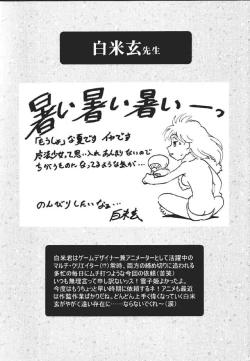 白米玄先生
暑い暑い暑いーっ
「もうしょ」な夏です イカです
魔法少女って思い入れあんまりないので
ちがうものになってるような気が…
のんびりしたいなぁ…
白米玄
白米君はゲームデザイナー兼アニメーターとして活躍中の
マルチ・クリエイター(!?)常時、両方の締め切りに追われる
多忙の毎日にムチ打つような今回の依頼(苦笑)
いつも無理言って申し訳ないッス!雷子姫よかったよ。
今度はもうちょっと早い時期に依頼するネ!アニメも最近
は作監作業ばかりだね。どんどん上手く偉くなっていく白米
玄がやがて遠い存在に……ならないでくれ〜(涙)